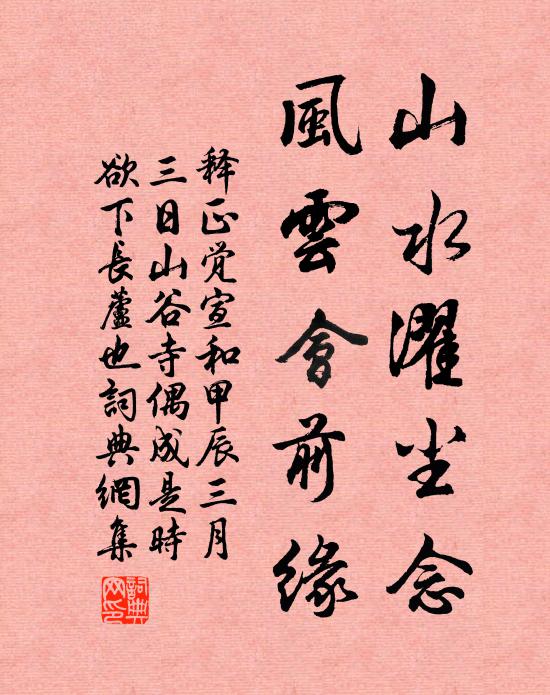 山水濯尘念
風雲會前緣
释正觉宣和甲辰三月
三日山谷寺偶成是時
欲下長蘆也詞典網集
詞典网印